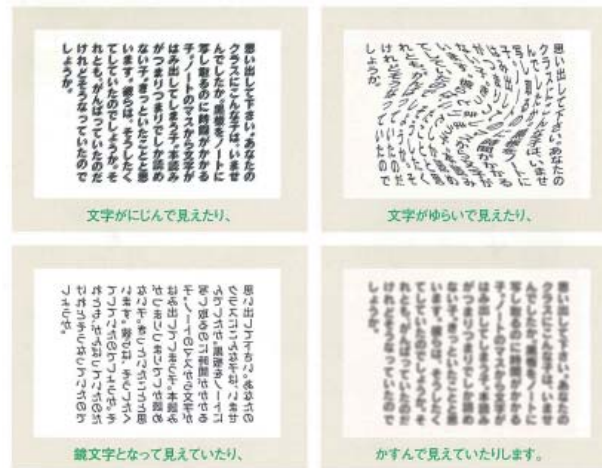 思い出して下さい。あなたの
クラスにこんな子は、いませ
んでしたか。黒板を、ノートに
写し取るのに時間がかかる
子。ノートのマスから文字が
はみ出してしまう子。本読み
がつまりつまりでしか読め
ない子。きっといたことと思
います。彼らは、そうしたく
てしていたのでしょうか。そ
れとも、がんばっていたのだ
けれどそうなっていたので
しょうか。
文字がにじんで見えたり、
思い出して下さい。あなたの
クラスにこんな子は、いませ
んでしたか。黒板を、ノートに
写し取るのに時間がかかる
子。ノートのマスから文字が
はみ出してしまう子。本読み
がつまりつまりでしか読め
ない子。きっといたことと思
います。彼らは、そうしたく
てしていたのでしょうか。そ
れとも、がんばっていたのだ
けれどそうなっていたので
しょうか。
文字がゆらいで見えたり、
思い出して下さい。あなたの
クラスにこんな子は、いませ
んでしたか。黒板を、ノートに
写し取るのに時間がかかる
子。ノートのマスから文字が
はみ出してしまう子。本読み
がつまりつまりでしか読め
ない子。きっといたことと思
います。彼らは、そうしたく
てしていたのでしょうか。そ
れとも、がんばっていたのだ
けれどそうなっていたので
しょうか。
鏡文字となって見えていたり、
思い出して下さい。あなたの
クラスにこんな子は、いませ
んでしたか。黒板を、ノートに
写し取るのに時間がかかる
子。ノートのマスから文字が
はみ出してしまう子。本読み
がつまりつまりでしか読め
ない子。きっといたことと思
います。彼らは、そうしたく
てしていたのでしょうか。そ
れとも、がんばっていたのだ
けれどそうなっていたので
しょうか。
かすんで見えていたりします。